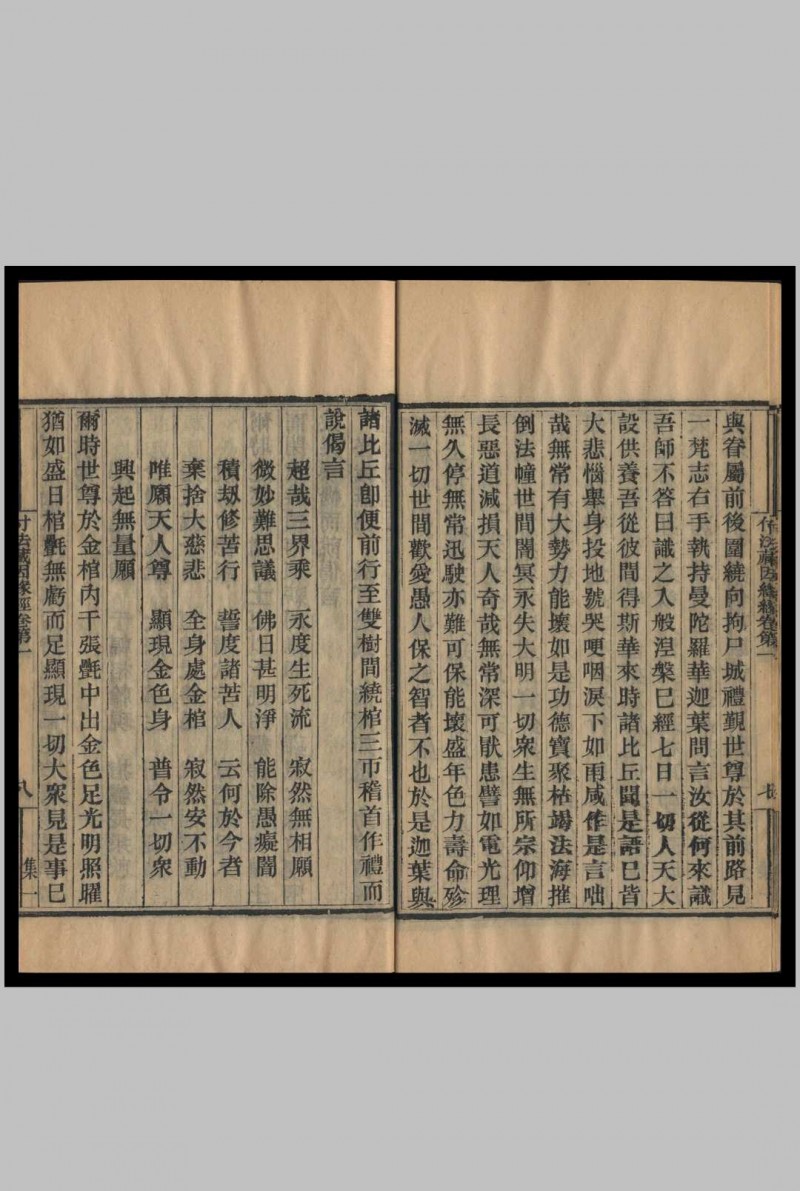 與眷屬前後圍繞向拘尸城禮覲世尊於其前路見
一梵志右手執持曼陀羅華迦葉問言汝從何來識
吾師不答曰識之入般涅槃巳經七日一切人天大
設供養吾從彼間得斯華來時諸比丘聞是語巳皆
大悲惱舉身投地號哭哽咽淚下如雨咸作是言咄
哉無常有大勢力能壞如是功德寶聚枯竭法海摧
倒法幢世間闇冥永失大明一切衆生無所宗仰增
長惡道減損天人奇哉無常深可猒患譬如電光理
無久停無常迅駛亦難可保能壞盛年色力壽命殄
滅一切世間歡愛愚人保之智者不也於是迦葉與
諸比丘卽便前行至雙樹間繞棺三帀稽首作禮而
說偈言
超哉三界乘　永度生死流　寂然無相願
微妙難思議　佛日甚明淨　能除愚癡闇
積劫修苦行　誓度諸苦人　云何於今者
棄捨大慈悲　全身處金棺　寂然安不動
唯願天人尊　顯現金色身　普令一切衆
興起無量願
爾時世尊於金棺內千張㲲中出金色足光明照曜
猶如盛日棺㲲無虧而足顯現一切大衆見是事巳
付法藏因緣經卷第一
八
集一